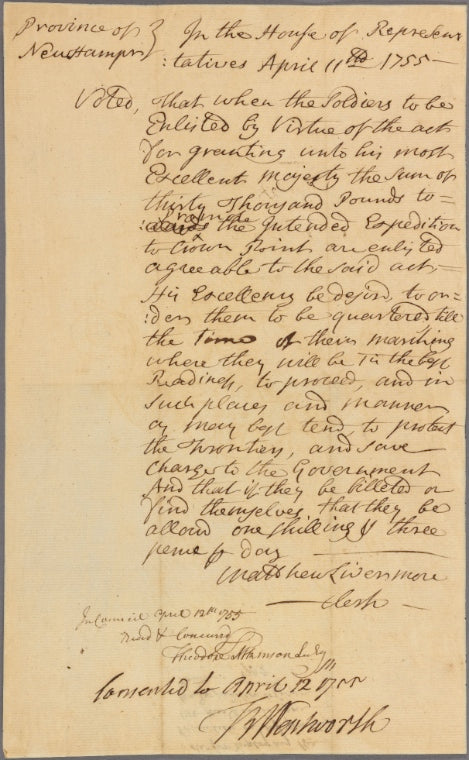 Province of } In the House of Represen
New Hampr } :tatives April 11th 1755 —
Voted, that when the Soldiers to be
Enlisted by Virtue of the act
for granting unto his most
Excellent majesty the sum of
thirty Thousand Pounds to=
promote
:wards the Intended Expedition
to Crown Point are enlisted
agreeable to the said act —
His Excellency be desird, to or=
:der them to be quartered till
the time of their marching
where they will be in the best
Readiness, to proceed, and in
such places and manner
as may best tend to protect
the Frontiers, and save
Charges to the Government
And that if they be billeted or
find themselves that they be
allowd one shilling & three
pence pr day
Matthew Livermore
Clerk —
In Council April 12th 1755
Read & Concurrd
Theodore Atkinson Secry
Consented to April 12th 1755
B Wentworth